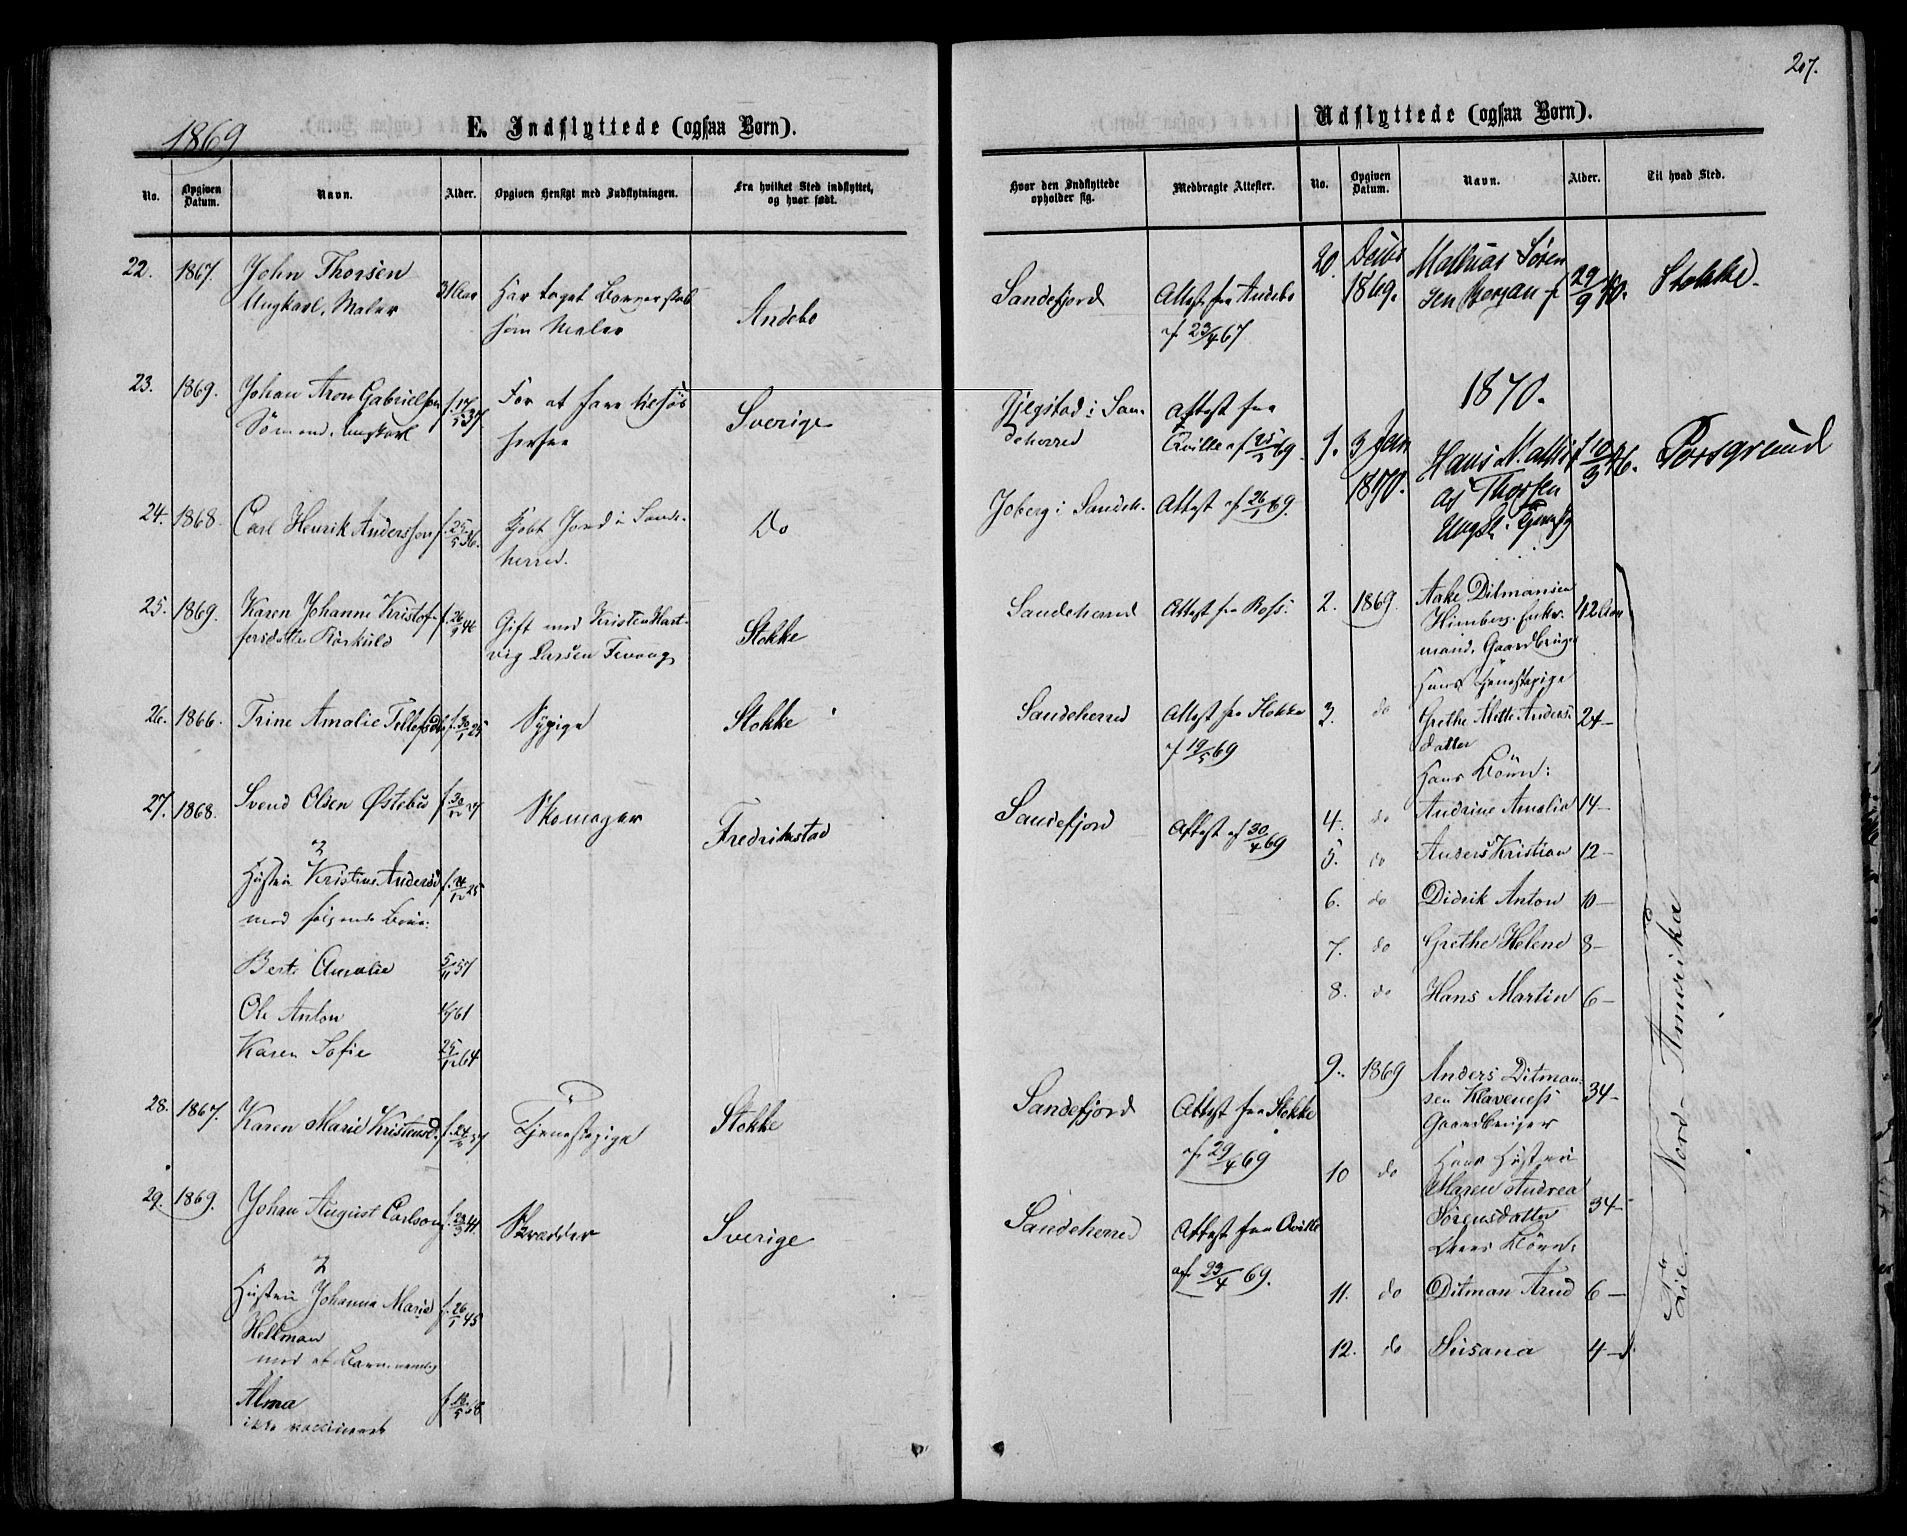 207.
1869
E. Indflyttede (ogsaa Børn).
Udflyttede (ogsaa Børn).
No.
Opgiven Datum.
Navn.
Alder.
Opgiven Hensigt med Indflytningen.
Fra hvilket Sted indflyttet, og hvor født.
Hvor den Indflyttede opholder sig.
Medbragte Attester.
No.
Opgiven Datum.
Navn.
Alder.
Til hvad Sted.
22. 1867. John Thorsen 31 Aar Har taget Borgerskab Andebo Sandefjord Attest fra Andebo
Ungkarl, Maler som Maler af 23/4 67
23. 1869. Johan Aron Gabrielsen f. 17/5 37 For at fare tilsøs Sverige Gjegstad i San- Attest fra
Sømand, Ungkarl herfra deherred Qville af 25/1 69.
24. 1868. Carl Henrik Andersson f. 25/5 36. Kjøbt Jord i Sande- Do Joberg i Sandeh. Attest af 26/1 69.
herred.
25. 1869. Karen Johanne Kristof- f. 26/9 46 Gift med Kristen Hart- Stokke Sandeherred Attest fra
fersdatter vig Larsen Fevang
26. 1866. Trine Amalie Tellefsdtr f. 30/1 25 Sypige Stokke Sandeherred Attest fra Stokke
af 19/5 69
27. 1868. Svend Olsen Østebø Skomager Fredrikstad Sandefjord Attest af 30/4 69
Hustru Kristine Andersd f. 24/12 25
med følgende Børn:
Berte Amalie 5/11 57
Ole Anton 61
Karen Sofie 25/12 64
28. 1867. Karen Marie Kristensd. Tjenestepige Stokke Sandefjord Attest fra Stokke
af 29/4 69
29. 1869. Johan August Carlson f. 23/3 41. Skrædder Sverige Sandeherred Attest fra Qville
af 23/4 69.
Hustru Johanna Maria f. 26/1 45
Hellman
med et Barn nemlig
Alma
ikke vaccineret
20. Decbr Mathias Søren f 29/9 40. Stokke.
1869. sen
1870.
1. 3 Jan Hans Mathi f 10/3 46. Porsgrund
1870. as Thorsen
Ungk.
2. 1869. Aake Ditmansen 42 Aar
Himberg,
mand, Gaardbruger
Hans Tjenestepige
3. do Grethe Mette Anders- 24 —
datter
Hans Børn:
4. do Andrine Amalie 14 —
5. do Anders Kristian 12 —
6. do Didrik Anton 10 —
7. do Grethe Helene 8 —
8. do Hans Martin 6 —
9. 1869 Anders Ditman- 34 —
sen Klavenæss
Gaardbruger
Hans Hustru
10 do Maren Andrea 34 —
Sørensdatter
Deres Børn:
11. do Ditman Arnd 6 —
12. do Susana 4 —
Til Nord-Amerika